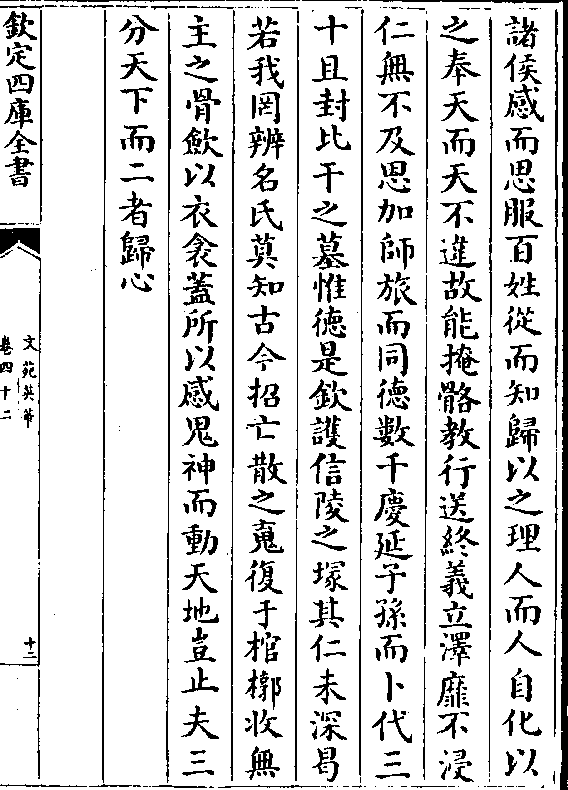 諸侯感而思服百姓從而知歸以之理人而人自化以
之奉天而天不違故能掩骼教行送終義立澤靡不浸
仁無不及恩加師旅而同德數千慶延子孫而卜代三
十且封比干之墓惟德是欽護信陵之塚其仁未深曷
若我罔辨名氏莫知古今招亡散之䰟復于棺槨收無
主之骨歛以衣衾蓋所以感鬼神而動天地豈止夫三
分天下而二者歸心
欽定四庫全書
文苑英華
卷四十二
十二